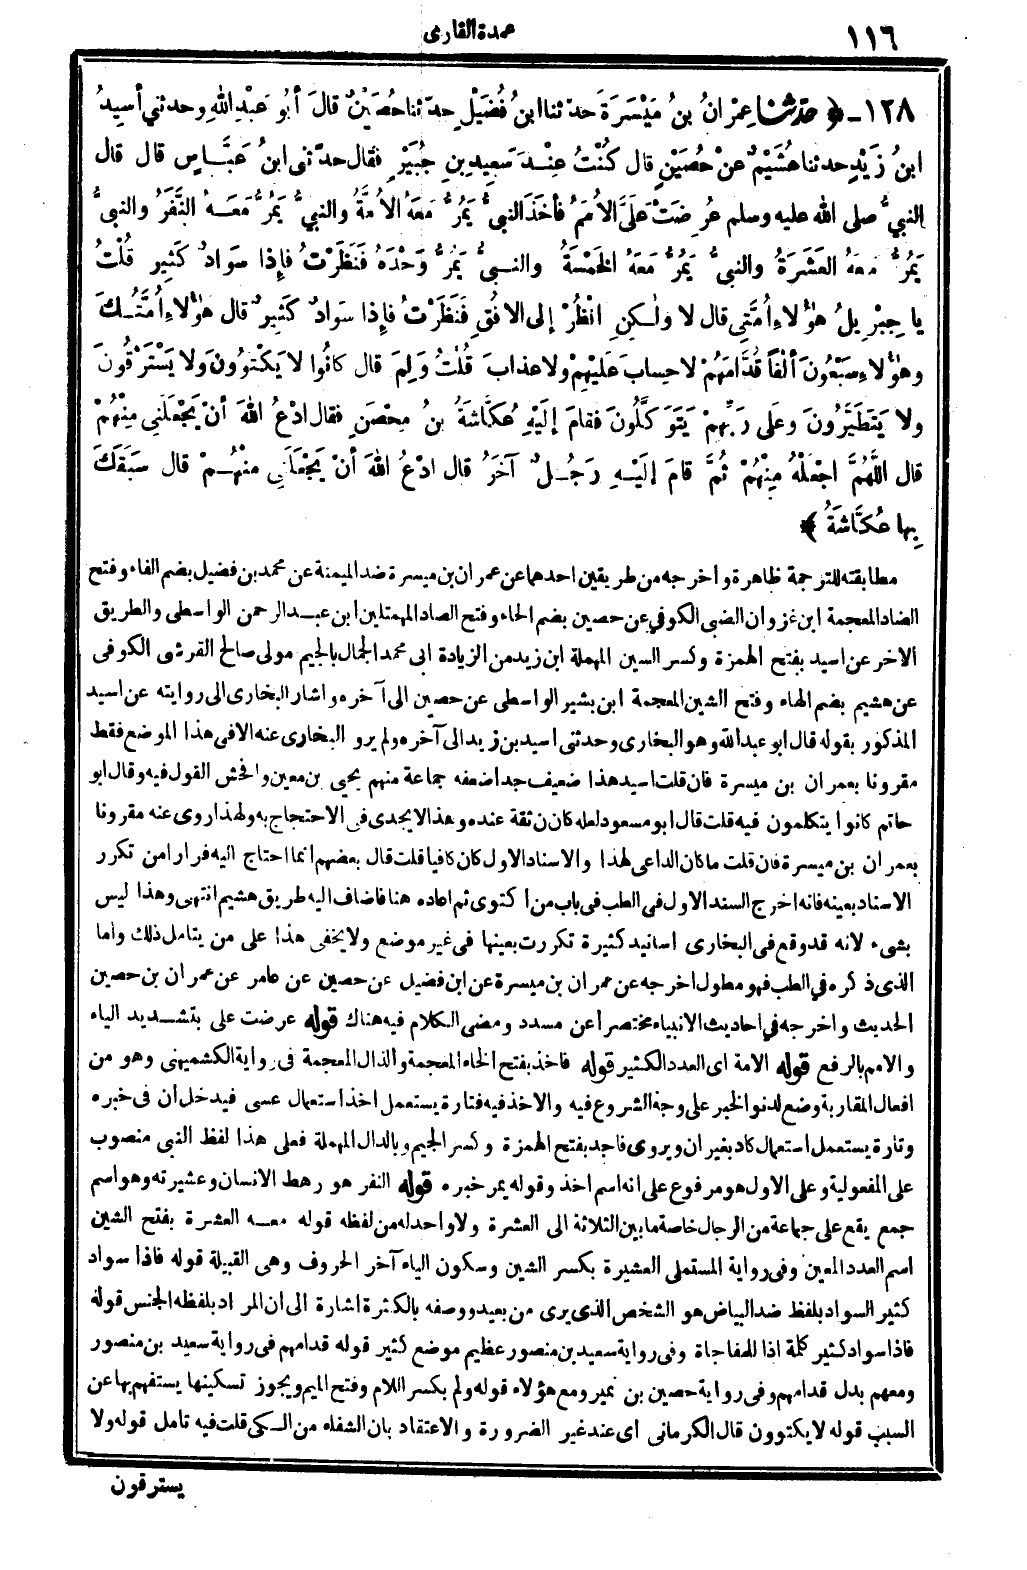 ١١٦
عمدة القارى
١٢٨ - ﴿ حدثنا عِمْرَانُ بنُ مَيْسَرَةَ حدثنا ابنُ فُضَيْلٍ حدّثنا حُصَيْنٌ قالَ أبُو عَبْدِ اللهِ وحدثني أسِيدُ
ابنُ زَيْدٍ حدثنا هُشَيْمٌ عنْ حُصَيْنٍ قال كُنْتُ عِنْدَ سَعِيدِ بنِ جُبَيْرٍ فقال حدّثنى ابنُ عَبَّاسٍ قال قال
النبيُّ صلى الله عليه وسلم عُرِضَتْ عَلَيَّ الأُمَمُ فأخَذَ النبيُّ يَمُرُّ مَعَهُ الأُمَّةُ والنبيُّ يَمُرُّ مَعَهُ النَّفَرُ والنبيُّ
يَمُرُّ مَعَهُ العَشَرَةُ والنبيُّ يَمُرُّ مَعَهُ الخَمْسَةُ والنبيُّ يَمُرُّ وَحْدَهُ فَنَظَرْتُ فإِذا سَوَادٌ كَثِيرٌ قُلْتُ
يا جِبْرِيلُ هؤُلاءِ أُمَّتِي قال لا ولكِنِ انْظُرْ إلى الأُفُقِ فَنَظَرْتُ فإذا سَوَادٌ كَثِيرٌ قال هؤُلاءِ أُمَّتُكَ
وهؤُلاءِ سَبْعُونَ ألْفاً قُدَّامَهُمْ لا حِسابَ عَلَيْهِمْ ولا عذابَ قُلْتُ وَلِمَ قال كانُوا لا يَكْتَوُونَ ولا يَسْتَرْقُونَ
ولا يَتَطَيَّرُونَ وعَلى رَبِّهِمْ يَتَوَكَّلُونَ فقامَ إلَيْهِ عُكَّاشَةُ بنُ مِحْصَنٍ فقال ادْعُ اللهَ أنْ يَجْعَلَنِي مِنْهُمْ
قال اللَّهُمَّ اجْعَلْهُ مِنْهُمْ ثُمَّ قامَ إلَيْهِ رَجُلٌ آخَرُ قال ادْعُ اللهَ أنْ يَجْعَلَنِي مِنْهُمْ قال سَبَقَكَ
بِها عُكَّاشَةُ ﴾
مطابقته للترجمة ظاهرة واخرجه من طريقين احدهما عن عمران بن ميسرة ضد الميمنة عن محمد بن فضيل بضم الفاء وفتح
الضاد المعجمة ابن غزوان الضبي الكوفي عن حصين بضم الحاء وفتح الصاد المهملتين ابن عبد الرحمن الواسطى والطريق
الآخر عن اسيد بفتح الهمزة وكسر السين المهملة ابن زيد من الزيادة ابى محمد الجمال بالجيم مولى صالح القرشى الكوفى
عن هشيم بضم الهاء وفتح الشين المعجمة ابن بشير الواسطى عن حصين الى آخره واشار البخارى الى روايته عن اسيد
المذكور بقوله قال ابو عبد الله وهو البخارى وحدثنى اسيد بن زيد الى آخره ولم يرو البخارى عنه الا فى هذا الموضع فقط
مقرونا بعمران بن ميسرة فان قلت اسيد هذا ضعيف جدا ضعفه جماعة منهم يحيى بن معين وافحش القول فيه وقال ابو
حاتم كانوا يتكلمون فيه قلت قال ابو مسعود لعله كان ثقة عنده وهذا لا يجدى فى الاحتجاج به ولهذا روى عنه مقرونا
بعمران بن ميسرة فان قلت ما كان الداعى لهذا والاسناد الاول كان كافيا قلت قال بعضهم انما احتاج اليه فرارا من تكرر
الاسناد بعينه فانه اخرج السند الاول فى الطب فى باب من اكتوى ثم اعاده هنا فاضاف اليه طريق هشيم انتهى وهذا ليس
بشىء لانه قد وقع فى البخارى اسانيد كثيرة تكررت بعينها فى غير موضع ولا يخفى هذا على من يتامل ذلك واما
الذى ذكره في الطب فهو مطول اخرجه عن عمران بن ميسرة عن ابن فضيل عن حصين عن عامر عن عمران بن حصين
الحديث واخرجه في احاديث الانبياء مختصرا عن مسدد ومضى الكلام فيه هناك قوله عرضت على بتشديد الياء
والامم بالرفع قوله الامة اى العدد الكثير قوله فاخذ بفتح الخاء المعجمة والذال المعجمة فى رواية الكشميهنى وهو من
افعال المقاربة وضع لدنو الخبر على وجه الشروع فيه والاخذ فيه فتارة يستعمل اخذ استعمال عسى فيدخل ان فى خبره
وتارة يستعمل استعمال كاد بغير ان ويروى فاجد بفتح الهمزة وكسر الجيم وبالدال المهملة فعلى هذا لفظ النبى منصوب
على المفعولية وعلى الاول هو مرفوع على انه اسم اخذ وقوله يمر خبره قوله النفر هو رهط الانسان وعشيرته وهو اسم
جمع يقع على جماعة من الرجال خاصة ما بين الثلاثة الى العشرة ولا واحد له من لفظه قوله معه العشرة بفتح الشين
اسم العدد المعين وفى رواية المستملى العشيرة بكسر الشين وسكون الياء آخر الحروف وهى القبيلة قوله فاذا سواد
كثير السواد بلفظ ضد البياض هو الشخص الذى يرى من بعيد ووصفه بالكثرة اشارة الى ان المراد بلفظه الجنس قوله
فاذا سواد كثير كلمة اذا للمفاجاة وفى رواية سعيد بن منصور عظيم موضع كثير قوله قدامهم فى رواية سعيد بن منصور
ومعهم بدل قدامهم وفى رواية حصين بن نمير ومع هؤلاء قوله ولم بكسر اللام وفتح الميم ويجوز تسكينها يستفهم بها عن
السبب قوله لا يكتوون قال الكرمانى اى عند غير الضرورة والاعتقاد بان الشفاء من الكى قلت فيه تامل قوله ولا
يسترقون